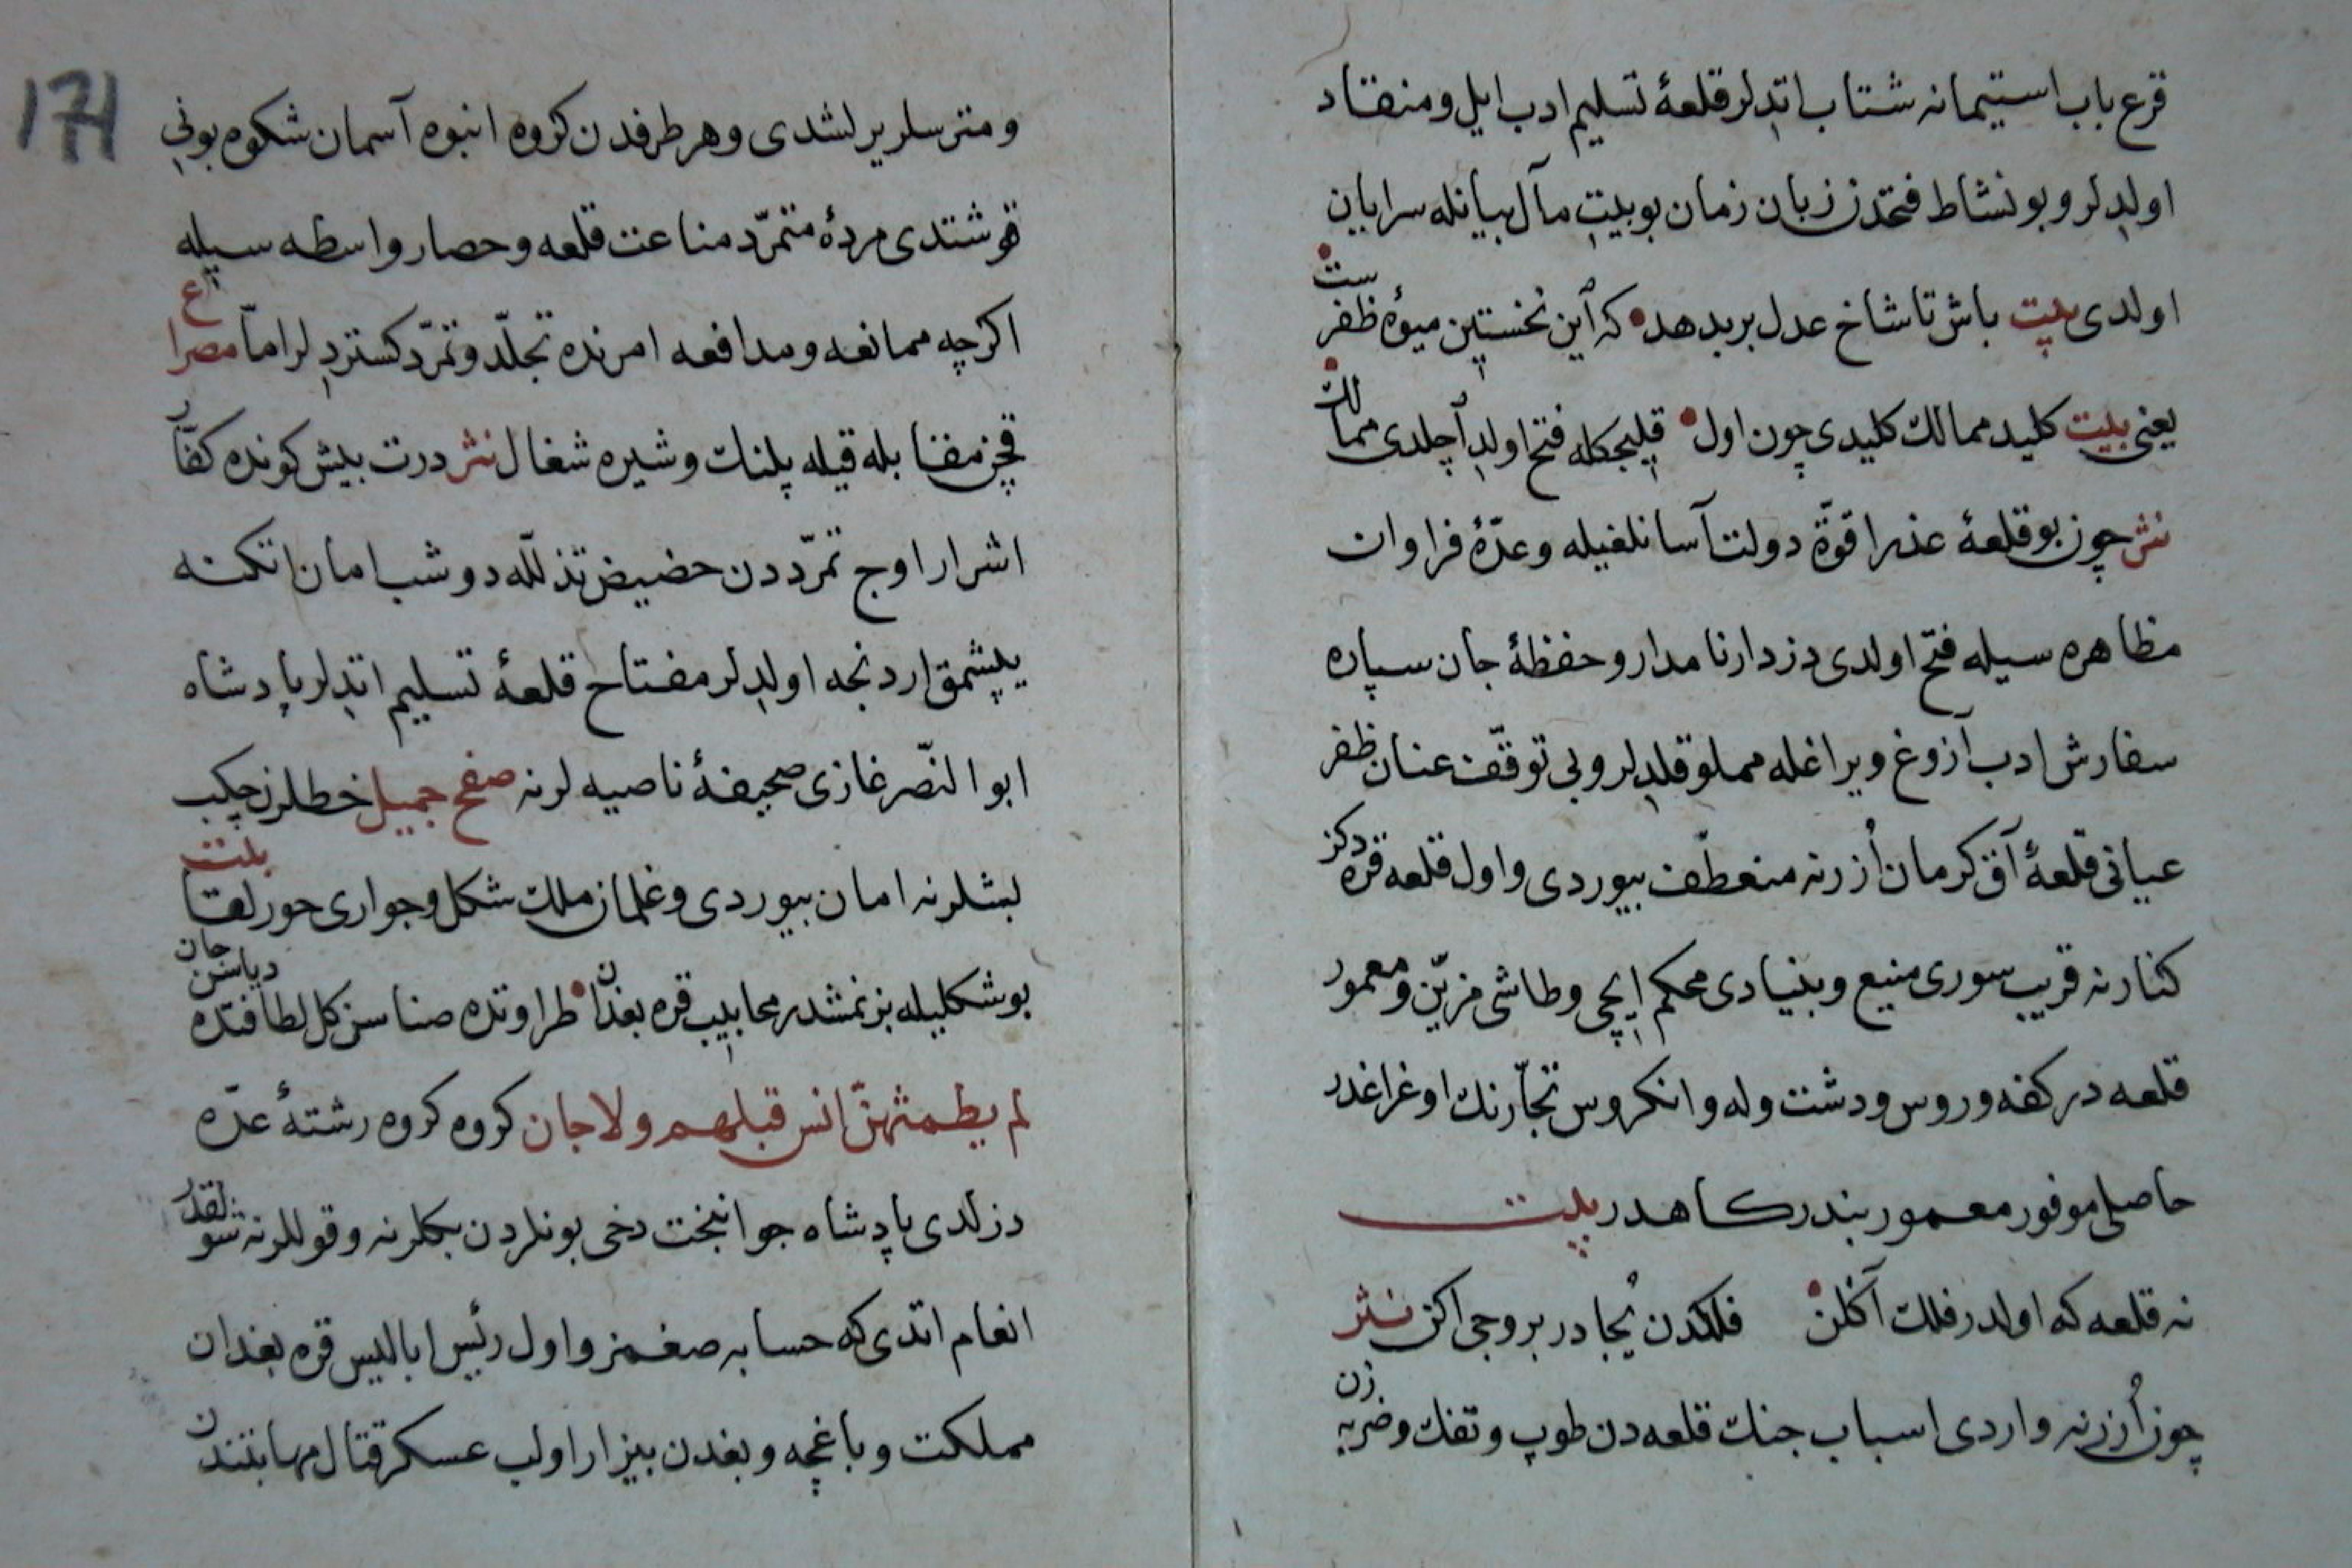 قرع باب استیمانه شتاب اتدلر قلعهٔ تسلیم ادب ایل و منقاد
اولدلر و بو نشاط فتحدن زبان زمان بو بیت مآل بیانله سرایان
اولدی بیت باش تا شاخ عدل بر بدهد • که این نخستین میوهٔ ظفر ست •
یعنی بیت کلید ممالک کلیدی چون اول • قلیجکله فتح اولد آچلدی ممالک
نثر چون بو قلعهٔ عذرا قوّة دولت آسانلغیله و عدّهٔ فراوان
مظاهره سیله فتح اولدی دزدار نامدار و حفظهٔ جان سپاره
سفارش ادب آزوغ و یراغله مملو قلدلر و بی توقّف عنان ظفر
عیانی قلعهٔ آق کرمان اُزرنه منعطف بیوردی و اول قلعه قره دکز
کنارنه قریب سوری منیع و بنیادی محکم ایچی و طاشی مزیّن و معمور
قلعه در کفه و روس و دشت و له و انکروس تجّارنك اوغراغدر
حاصلی موفور معمور بندرکاهدر بیت
نه قلعه که اولدر فلك آکلن • فلکدن یُجادر بروجی اکن نثر
چون اُزرنه واردی اسباب جنك قلعه دن طوپ و تفك و ضربه زن
174
و مترسلر یرلشدی و هر طرفدن کروه انبوه آسمان شکوه بونی
قوشتدی مردهٔ متمرّد مناعت قلعه و حصار واسطه سیله
اکرچه ممانعه و مدافعه امرنده تجلّد و تمرّد کستردلر امّا مصراع
قچن مقابله قیله پلنك و شیره شغال نثر درت بیش کونده کفّار
اشرار اوج تمرّددن حضیض تذلّله دوشب امان اتکنه
یپشمق اردنجه اولدلر مفتاح قلعهٔ تسلیم اتدلر پادشاه
ابو النّصر غازی صحیفهٔ ناصیه لرنه صفح جمیل خطلرن چکب
بشلرنه امان بیوردی و غلمان ملك شکل و جواری حور لقا بیت
بو شکلیله بزنمشدر محابیب قره بغدان • طراوتده صناسن کل لطافتده دیاسن جان
لم یطمثهنّ انس قبلهم ولا جان کروه کروه رشتهٔ عدّه
دزلدی پادشاه جوانبخت دخی بونلردن بکلرنه و قوللرنه شولقدر
انعام اتدی که حسابه صغمز و اول رئیس ابالیس قره بغدان
مملکت و باغچه و بغدن بیزار اولب عسکر قتال مهابتندن